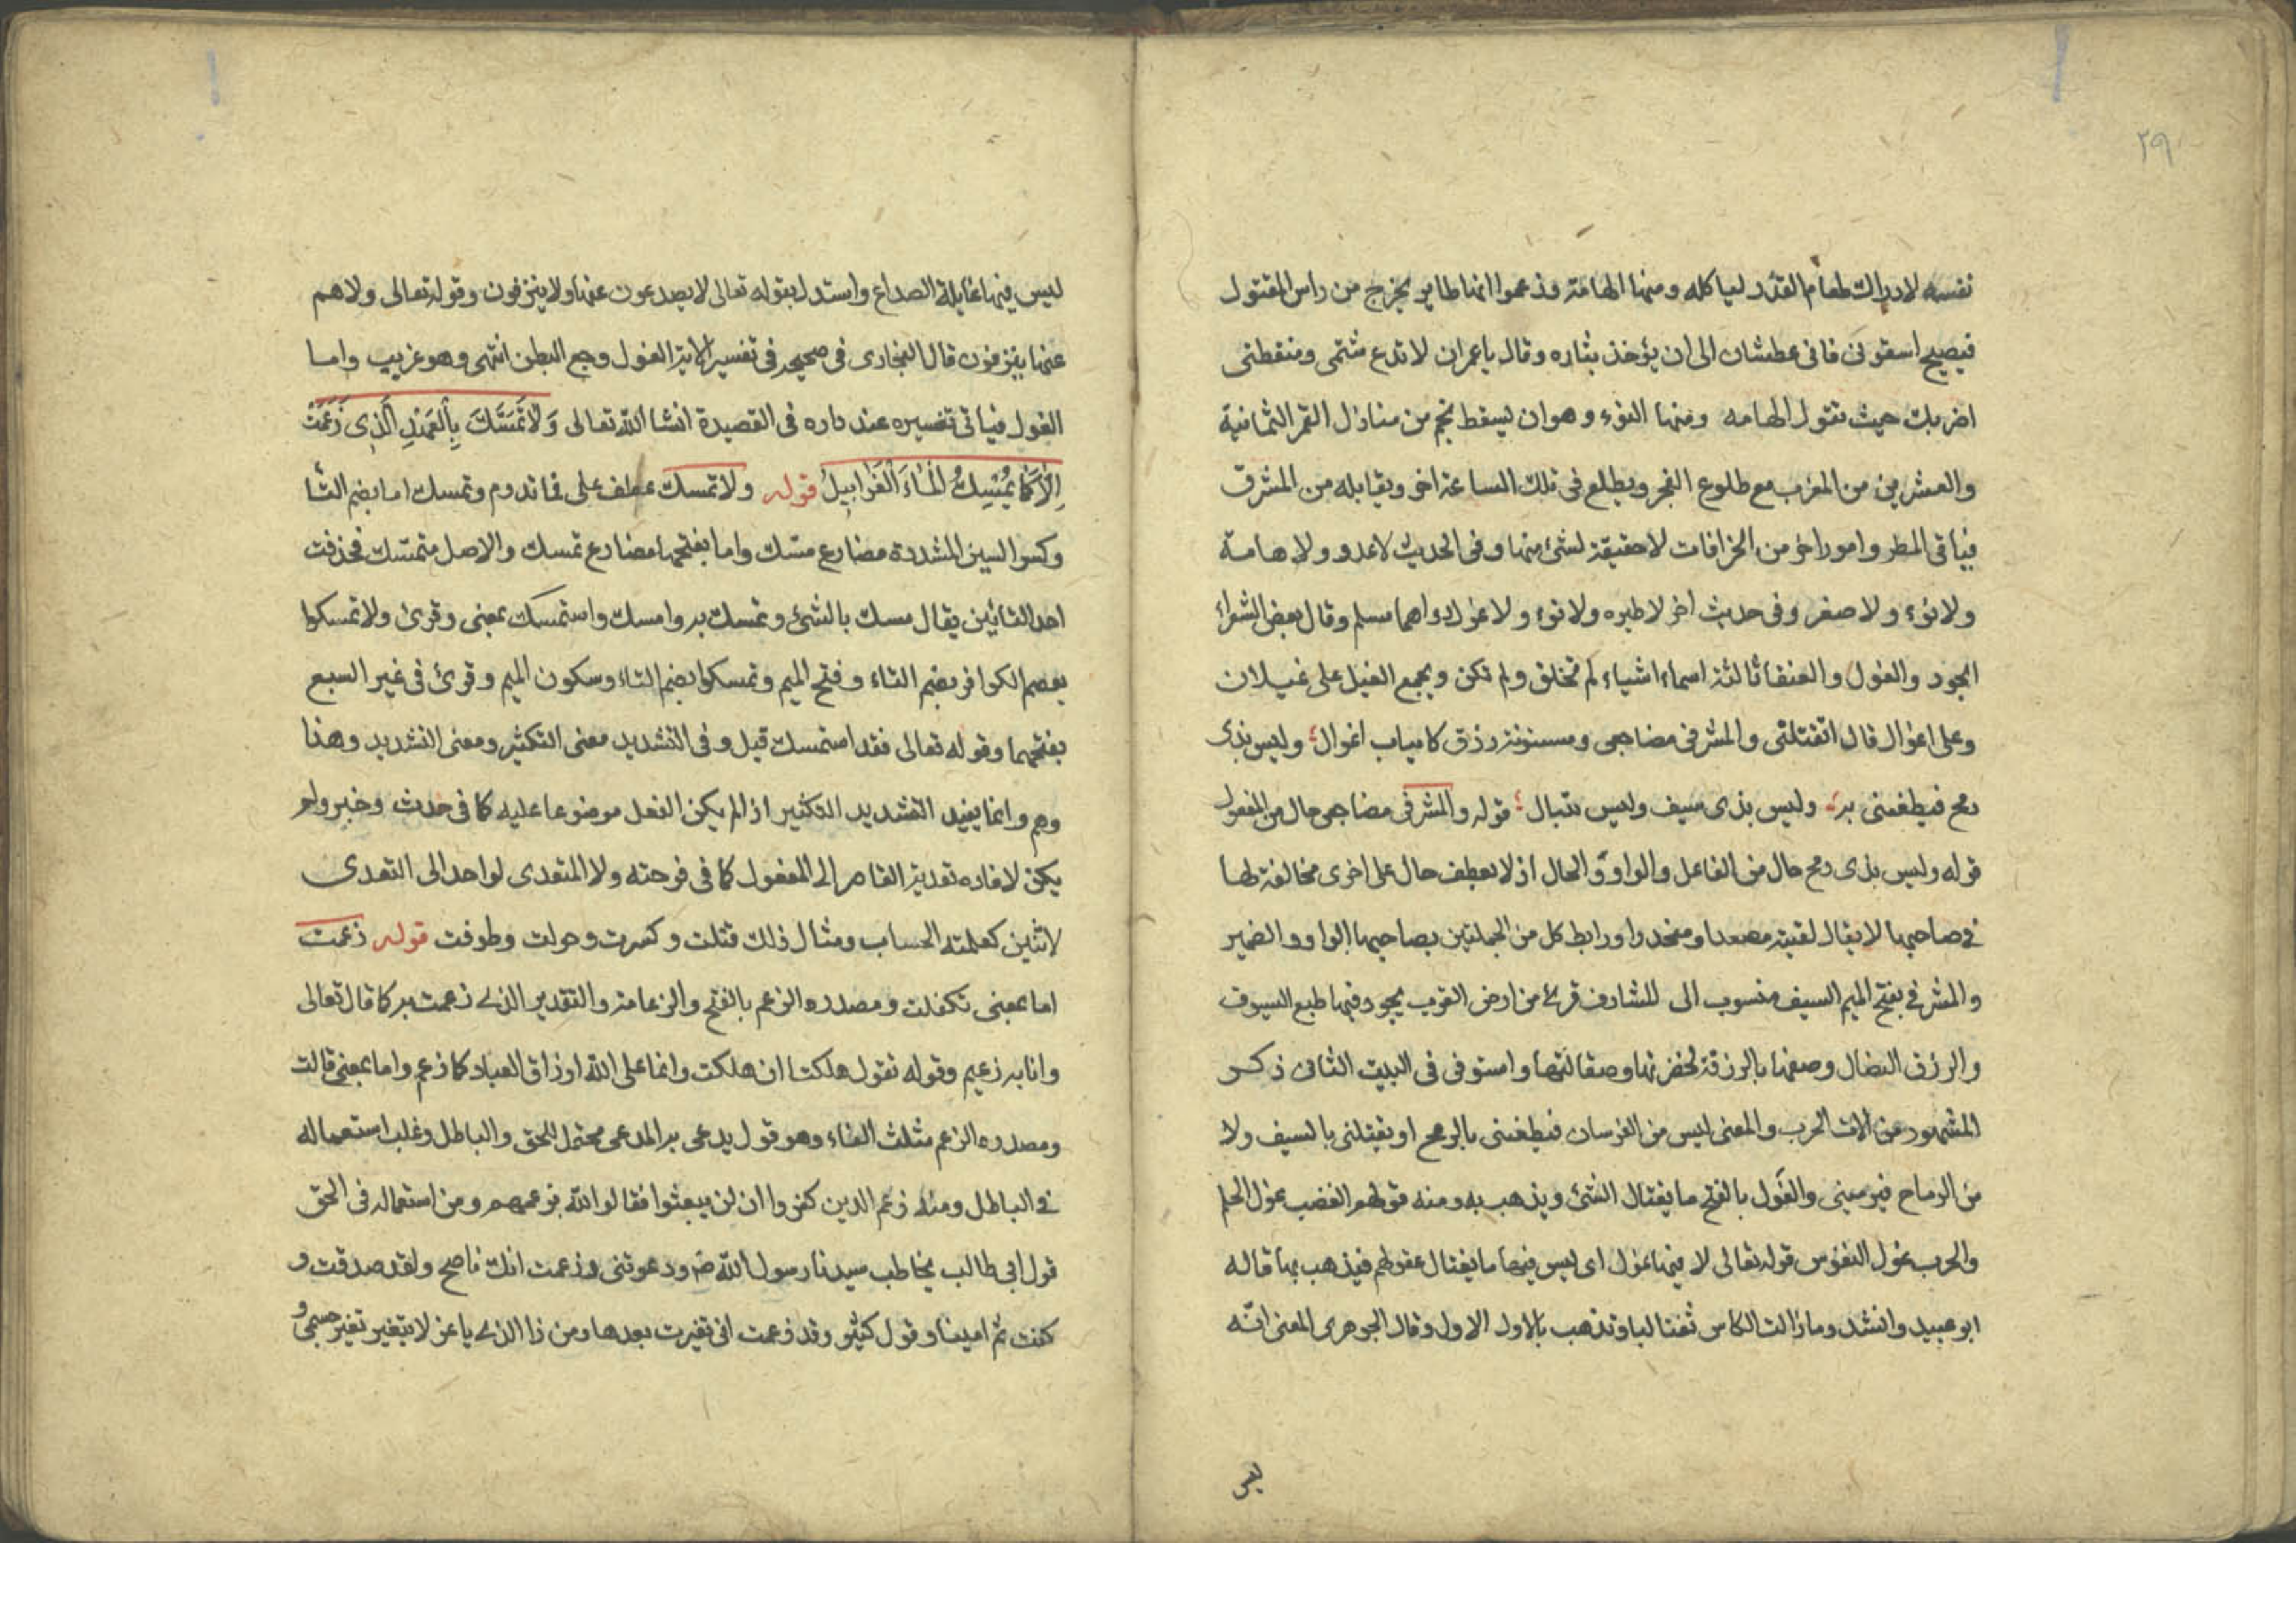 ٢٩
نفسه لادراك طعام القدر لياكله ومنها الهامة وزعموا انها طاير يخرج من راس المقتول
فيصيح اسقونى فانى عطشان الى ان يؤخذ بثاره وقال ياعمران لا تدع شتمى ومنقطتى
اضربك حيث تقول الهامه ومنها النوء وهو ان يسقط نجم من منازل القمر الثمانية
والعشرين من المغرب مع طلوع الفجر ويطلع فى تلك الساعة اخر ويقابله من المشرق
فياتى المطر وامورا خر من الخرافات لا حقيقة لشئ منها وفى الحديث لا عدو ولا هامة
ولا نوء ولا صفر وفى حديث اخر لا طيره ولا نوء ولا غول رواهما مسلم وقال بعض الشعراء
الجود والغول والعنقا ثالثة اسماء اشياء لم تخلق ولم تكن ويجمع الغيل على غيلان
وعلى اغوال قال اتقتلنى والمشرفى مضاجعى ومسنونة رزق كانياب اغوال وليس بذى
رمح فيطعننى به وليس بذى سيف وليس بنبال قوله والمشرفى مضاجعى حال من المفعول
قوله وليس بذى رمح حال من الفاعل والواو و الحال اذ لا يعطف حال على اخرى مخالفة لها
فى صاحبها لا يقال لقيته مصعدا ومنحدرا ورابط كل من الجملتين بصاحبها الواو والضمير
والمشرفى بفتح الميم السيف منسوب الى للشارف قرى من ارض العرب يجود فيها طبع السيوف
والرزق النصال وصفها بالرزقة لخضرتها وصقالتها واستوفى فى البيت الثانى ذكر
المشهور من الات الحرب والمعنى ليس من الفرسان فيطعننى بالرمح او يقتلنى بالسيف ولا
من الرماح فيرمينى والغول بالفتح ما يغتال الشئ ويذهب به ومنه قولهم الغضب غول الحلم
والحرب غول النفوس قوله تعالى لا فيها غول اى ليس فيها ما يغتال عقولهم فيذهب بها قاله
ابو عبيد وانشد وما زالت الكاس تغتالنا وتذهب بالاول الاول وقال الجوهرى المعنى انه
ليس
ليس فيها غايلة الصداع واستدل بقوله تعالى لا يصدعون عنها ولا ينزفون وقوله تعالى ولاهم
عنها ينزفون قال البخارى فى صحيحه فى تفسير الاية الغول وجع البطن انتهى وهو غريب واما
الغول فياتى تفسيره عند داره فى القصيدة انشا الله تعالى وَلَاتَمَسَّكَ بِالْعَهْدِ الَّذِى زَعَمَتْ
اِلَّا كَمَا يُمْسِكُ الْمَاءَ الْغَرَابِيلُ قوله ولا تمسك عطف على فما تدوم وتمسك اما بضم التا
وكسر السين المشددة مضارع مسّك واما بفتحها مضارع تمسك والاصل متمسّك فحذفت
احد التائين يقال مسك بالشئ وتمسك به وامسك واستمسك بمعنى وقرئ ولا تمسكوا
بعصم الكوافر بضم التاء وفتح الميم وتمسكوا بضم التاء وسكون الميم وقرئ فى غير السبع
بفتحهما وقوله تعالى فقد استمسك قيل وفى التشديد معنى التكثير ومعنى التشديد وهذا
وهم وانما يفيد التشديد التكثير اذ الم يكن الفعل موضوعا عليه كما فى حدث وخبر ولم
يكن لافاده تعدية القاصر الى المفعول كما فى فرحته ولا المتعدى لواحد الى التعدى
لاثنين كعلمته الحساب ومثال ذلك قتلت وكسرت وحولت وطوفت قوله زعمت
اما بمعنى تكفلت ومصدره الزعم بالفتح والزعامة والتقدير الذى زعمت به كما قال تعالى
وانا به زعيم وقوله نقول هلكنا ان هلكت وانما على الله ارزاق العباد كما زعم واما بمعنى قالت
ومصدره الزعم مثلث الفاء وهو قول يدعى به المدعى محتمل للحق والباطل وغلب استعماله
فى الباطل ومنه زعم الذين كفروا ان لن يبعثوا فقالوا لله بزعمهم ومن استعماله فى الحق
قول ابى طالب يخاطب سيدنا رسول الله ص ودعوتنى وزعمت انك ناصح ولقد صدقت و
كنت ثم امينا وقول كثير وقد زعمت انى تغيرت بعدها ومن ذا الذى ياعز لا يتغير تغير جسمى و